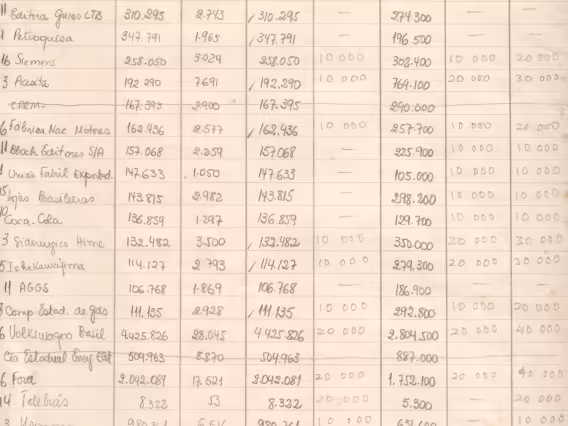 11 Editora Guias LTB 310.295 2.743 310.295 — 274.300 — —
1 Petroquisa 347.791 1.965 347.791 — 196.500 — —
16 Siemens 258.050 3024 258.050 10 000 302.400 10 000 20 000
3 Acesita 192 290 7691 192.290 10 000 769.100 20 000 30 000
CPRM 167.395 2900 167.395 290.000
6 Fábrica Nac Motores 162.436 2.577 162.436 10 000 257.700 10 000 20 000
11 Bloch Editores S/A 157.068 2.259 157.068 — 225.900 10 000 10 000
1 Fabril 147.633 1.050 147.633 — 105.000 10 000 10 000
15 Lojas Brasileiras 143.815 2.982 143.815 — 298.200 10 000 10 000
10 Coca-Cola 136.859 1.297 136.859 — 129.700 10 000 10 000
3 Siderurgica Hime 132.482 3.500 132.482 10 000 350000 20 000 30 000
5 Ishikawajima 114.127 2 793 114.127 10 000 279,300 20 000 30 000
11 AGGS 106.768 1.869 106.768 — 186.900 — —
Comp Estad. de gás 111.135 2.928 111.135 10 000 292.800 10 000 20 000
6 Volkswagen Brasil 4.425.826 28.045 4.425.826 20 000 2.804.500 20 000 40 000
Cia Estadual 504.963 8.870 504.963 887.000
6 Ford 2.042.081 17.521 2.042.081 20 000 1.752.100 20 000 40 000
14 Telebrás 8.322 53 8.322 20 000 5.300 — 20 000
3 10 000 10 000